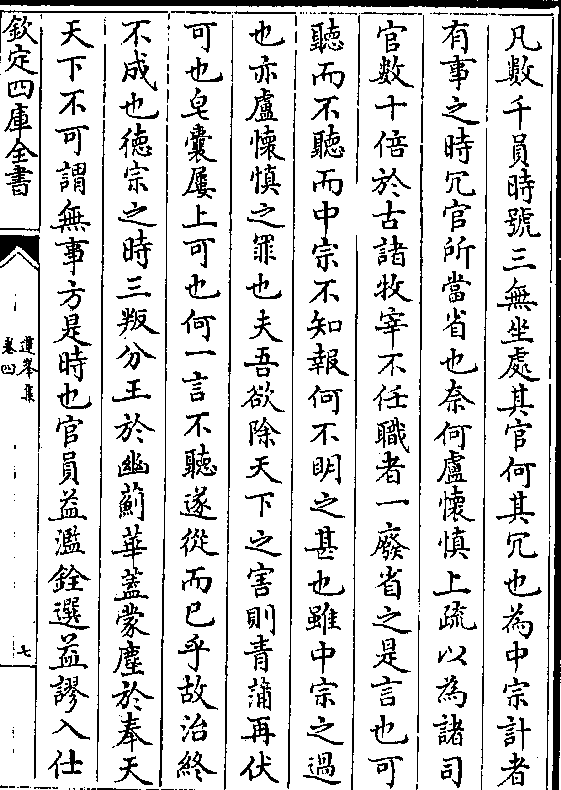 凡數千員時號三無坐處其官何其冗也為中宗計者
有事之時冗官所當省也奈何盧懷慎上疏以為諸司
官數十倍於古諸牧宰不任職者一廢省之是言也可
聽而不聽而中宗不知報何不明之甚也雖中宗之過
也亦盧懷慎之罪也夫吾欲除天下之害則青蒲再伏
可也皂囊屢上可也何一言不聽遂從而已乎故治終
不成也徳宗之時三叛分王於幽薊華蓋蒙塵於奉天
天下不可謂無事方是時也官員益濫銓選益謬入仕
欽定四庫全書
卷四
七